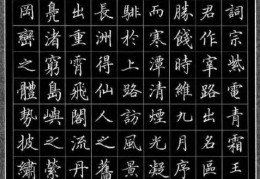 詞宗紫電青霜王
君作宰路出名區
勝餞時維九月序
而寒潭清煙光凝
騑於上路訪風景
長洲得仙人之舊
出重霄飛閣流丹
鳧渚窮島嶼之縈
岡巒之體勢披繡